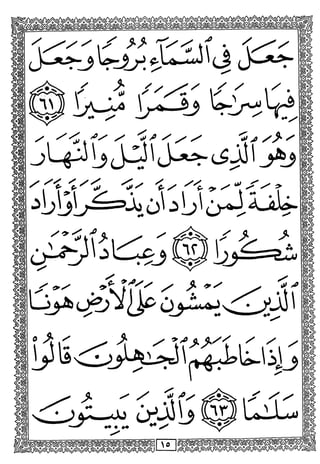 جَعَلَ فِي ٱلسَّمَآءِ بُرُوجٗا وَجَعَلَ
فِيهَا سِرَٰجٗا وَقَمَرٗا مُّنِيرٗا ٦١
وَهُوَ ٱلَّذِي جَعَلَ ٱلَّيۡلَ وَٱلنَّهَارَ
خِلۡفَةٗ لِّمَنۡ أَرَادَ أَن يَذَّكَّرَ أَوۡ أَرَادَ
شُكُورٗا ٦٢ وَعِبَادُ ٱلرَّحۡمَٰنِ
ٱلَّذِينَ يَمۡشُونَ عَلَى ٱلۡأَرۡضِ هَوۡنٗا
وَإِذَا خَاطَبَهُمُ ٱلۡجَٰهِلُونَ قَالُواْ
سَلَٰمٗا ٦٣ وَٱلَّذِينَ يَبِيتُونَ
١٥